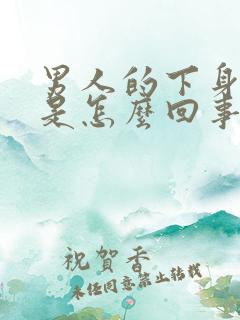 男人的下身
是怎麼回事
祝賀香
未任同意禁止轉載